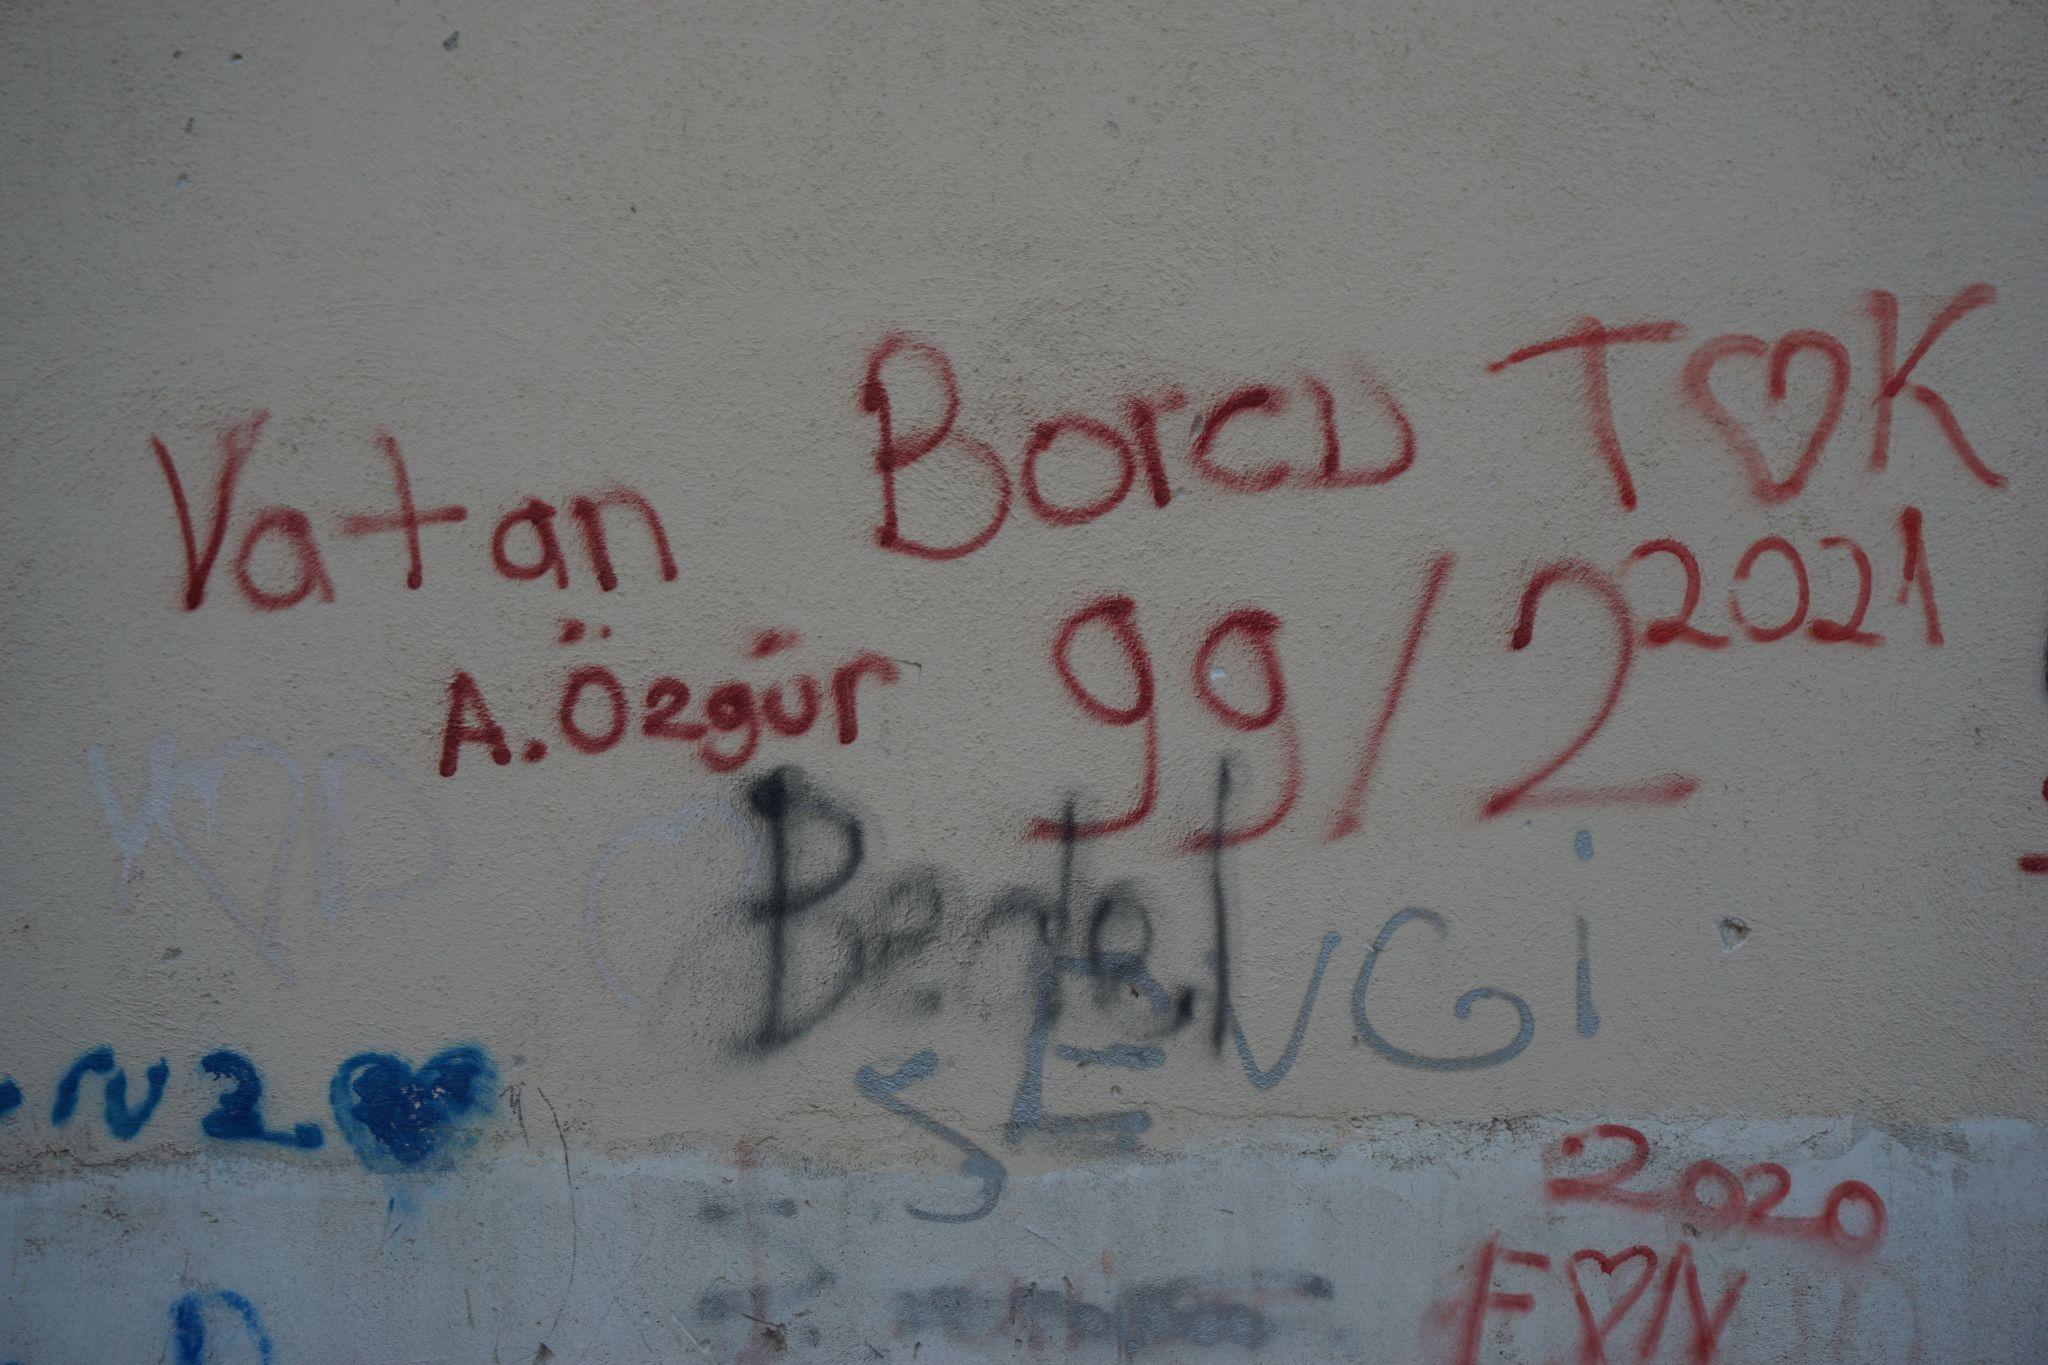 Vatan Borcu T♡K
2021
A.Özgür 99/2
V♡D
SENGİ
2.♥
2020
E♡N
D